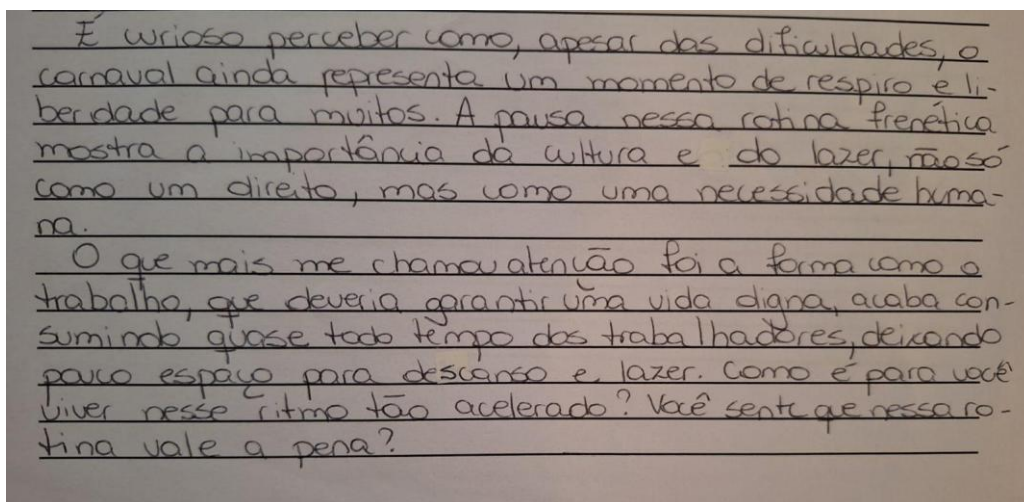 É curioso perceber como, apesar das dificuldades, o
carnaval ainda representa um momento de respiro e li-
berdade para muitos. A pausa nessa rotina frenética
mostra a importância da cultura e do lazer, não só
como um direito, mas como uma necessidade huma-
na.
O que mais me chamou atenção foi a forma como o
trabalho, que deveria garantir uma vida digna, acaba con-
sumindo quase todo tempo dos trabalhadores, deixando
pouco espaço para descanso e lazer. Como é para você
viver nesse ritmo tão acelerado? Você sente que nessa ro-
tina vale a pena?